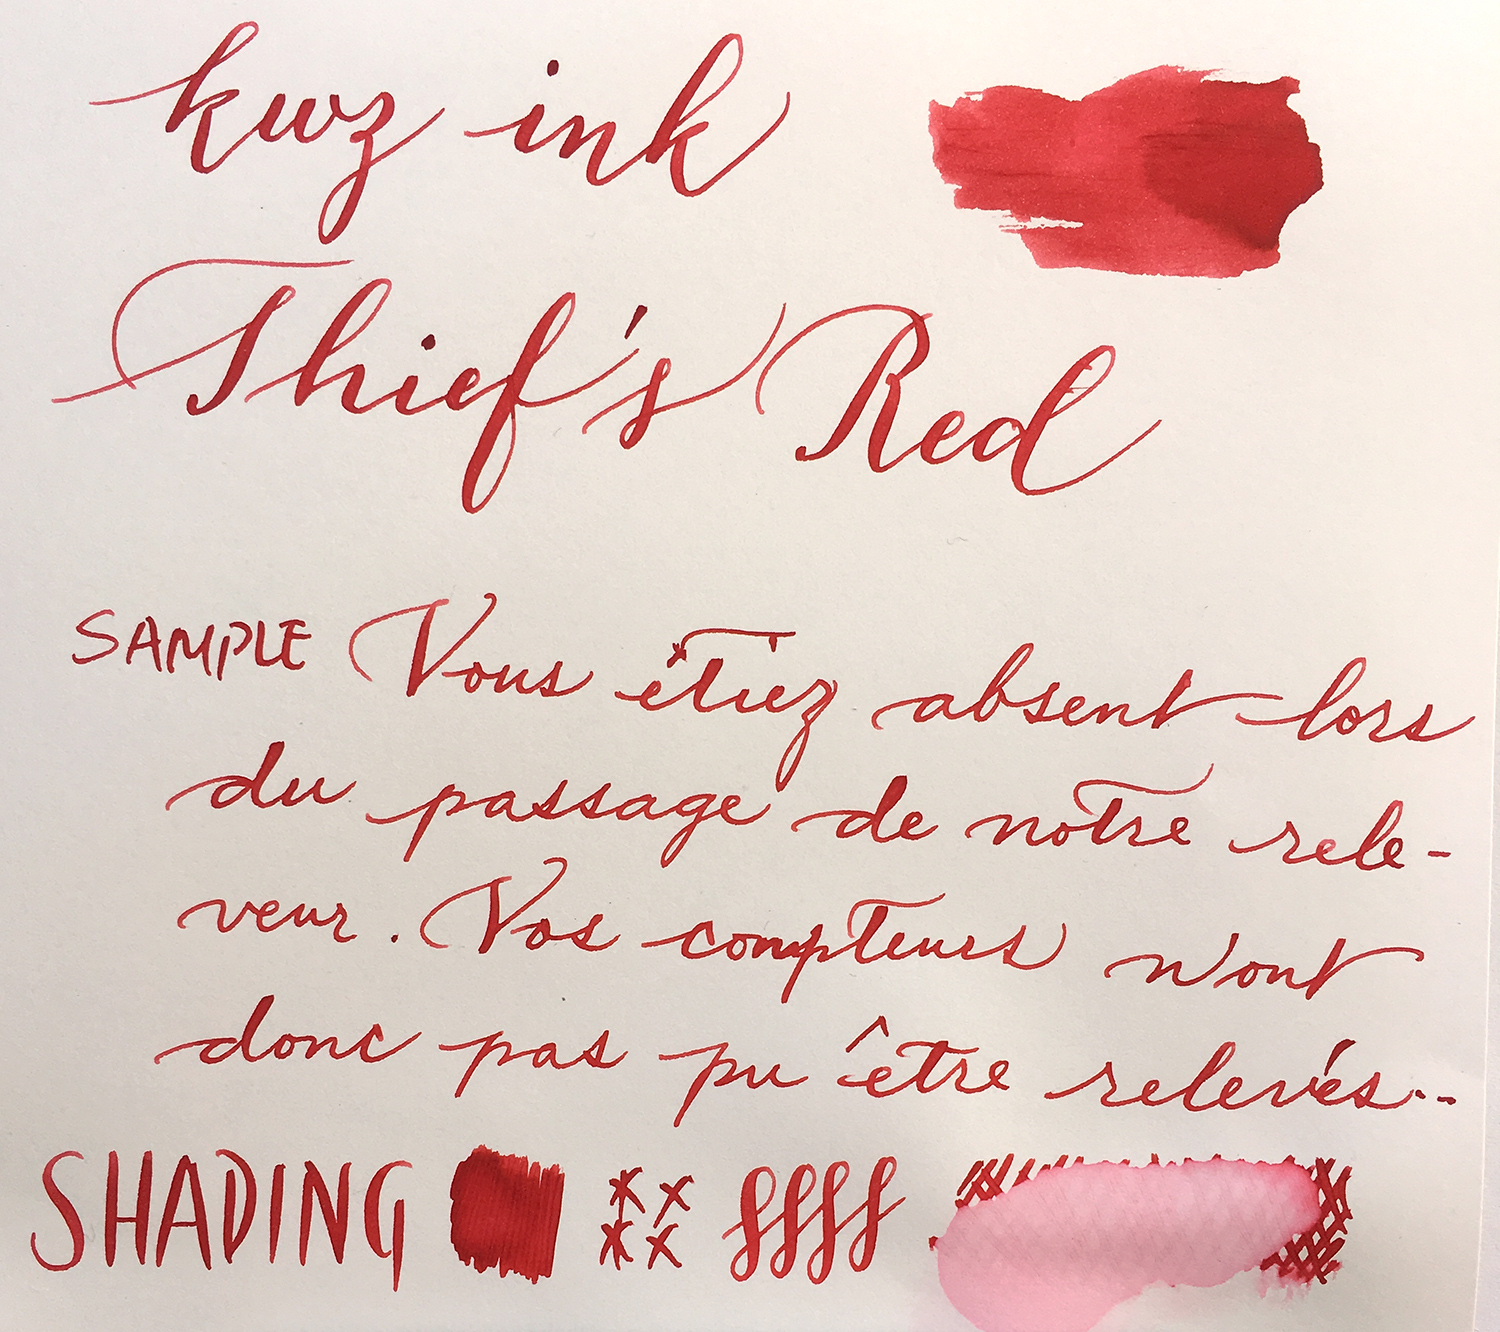 kwz ink
Thief's Red
SAMPLE Vous étiez absent lors
du passage de notre rele-
veur. Vos compteurs n'ont
donc pas pu être relevés..
SHADING